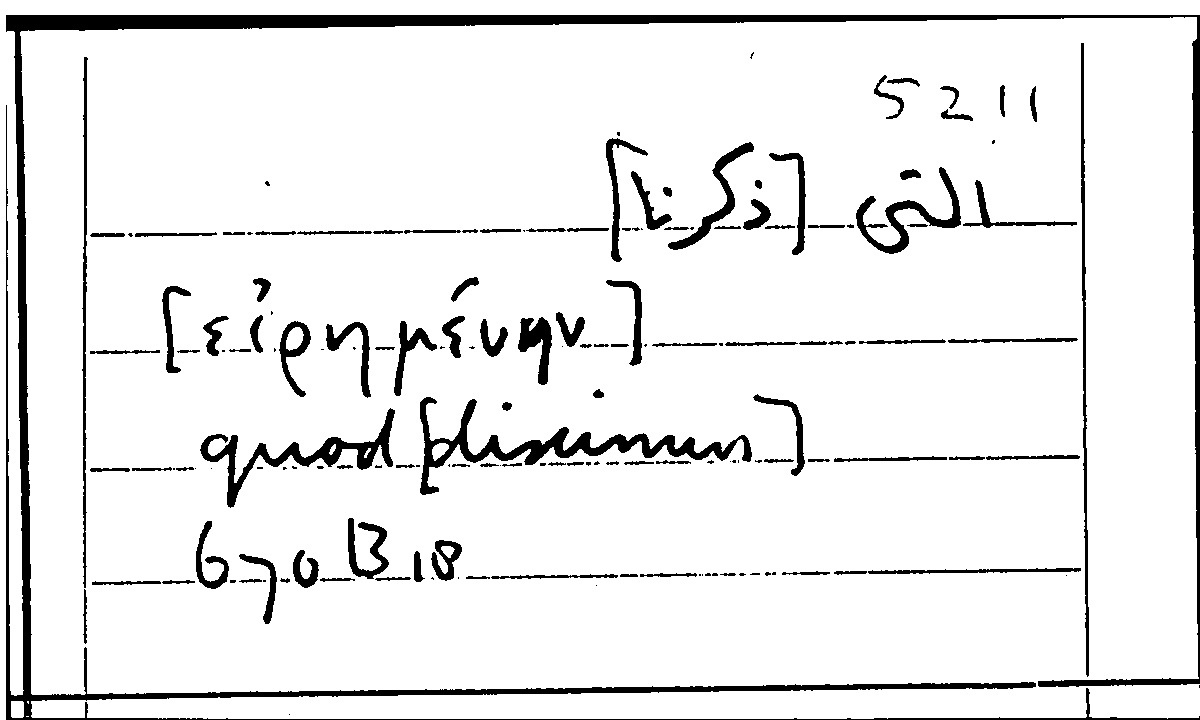 5211
التى [ذكرنا]
[εἰρημένην]
quod [diximus]
670 B 18